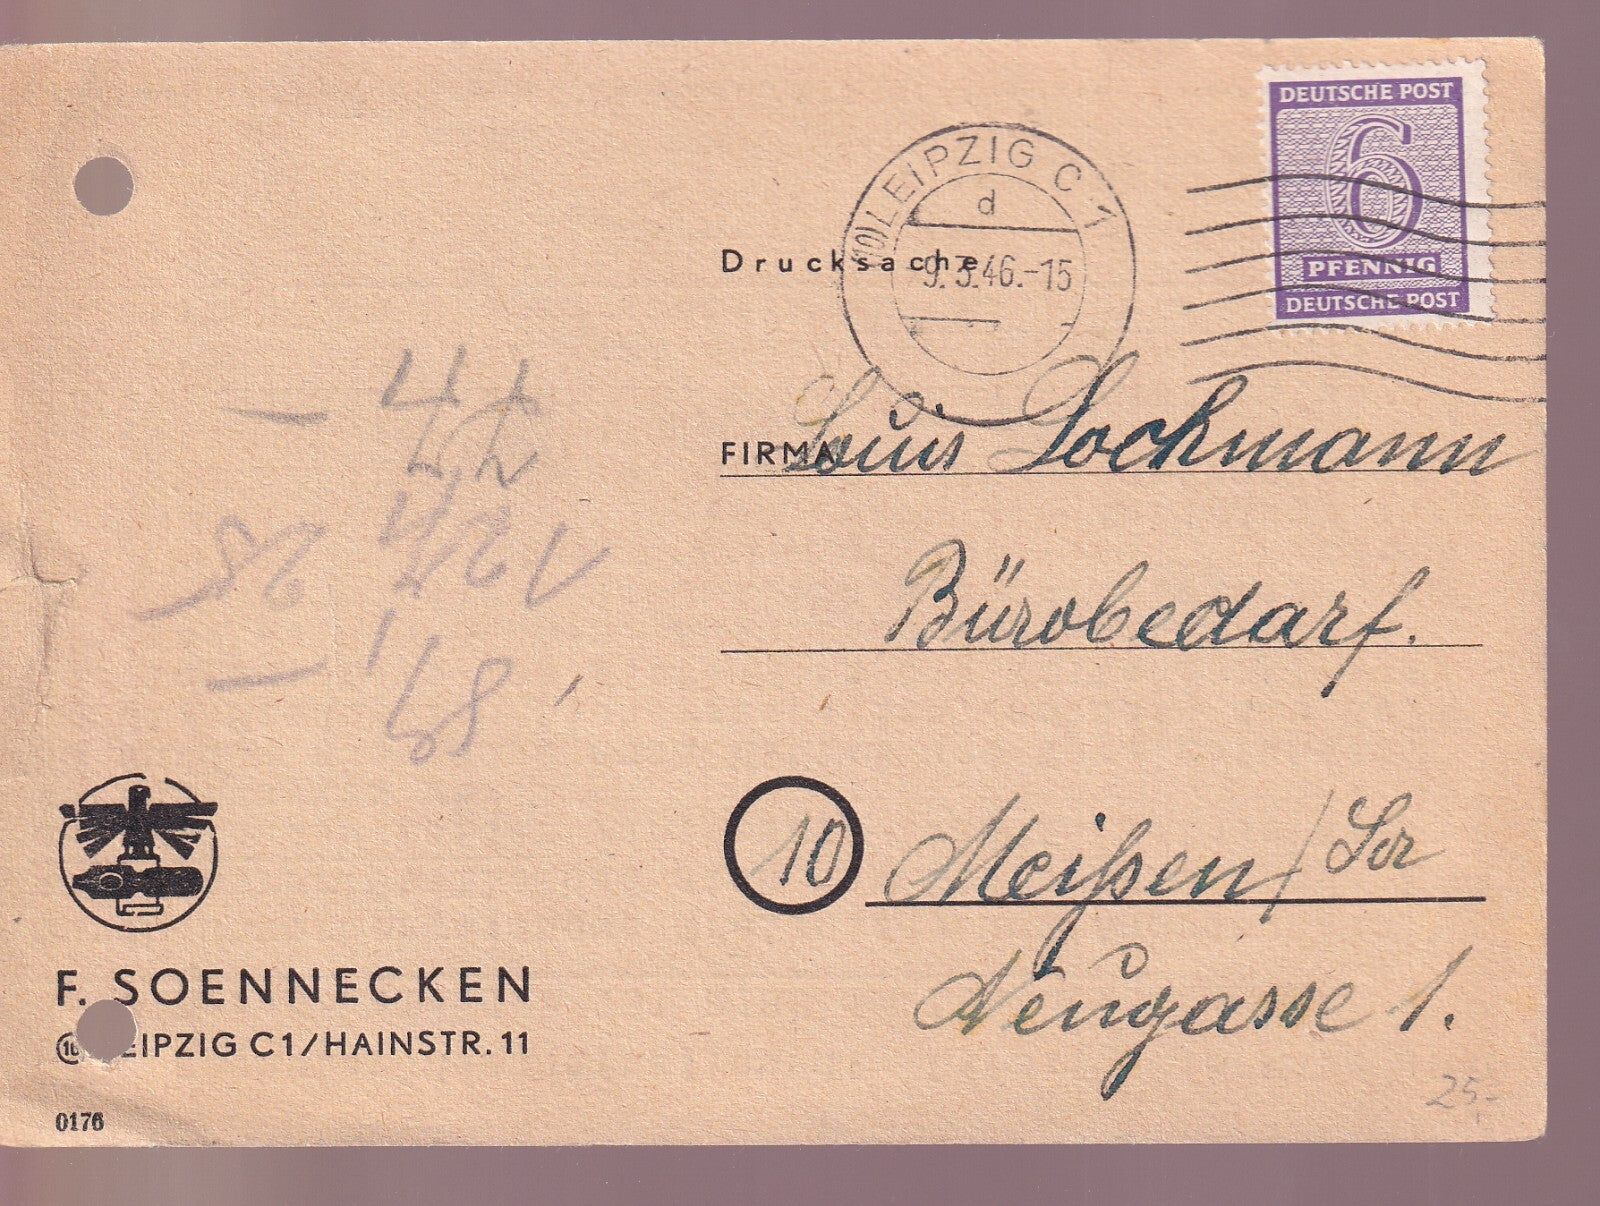 DEUTSCHE POST
6
PFENNIG
DEUTSCHE POST
(10) LEIPZIG C 1
d
9.3.46.-15
Drucksache
FIRMA Louis Lochmann
Bürobedarf.
10 Meißen/Sa
Neugasse 1.
F. SOENNECKEN
10 LEIPZIG C1/HAINSTR. 11
0176
25,-